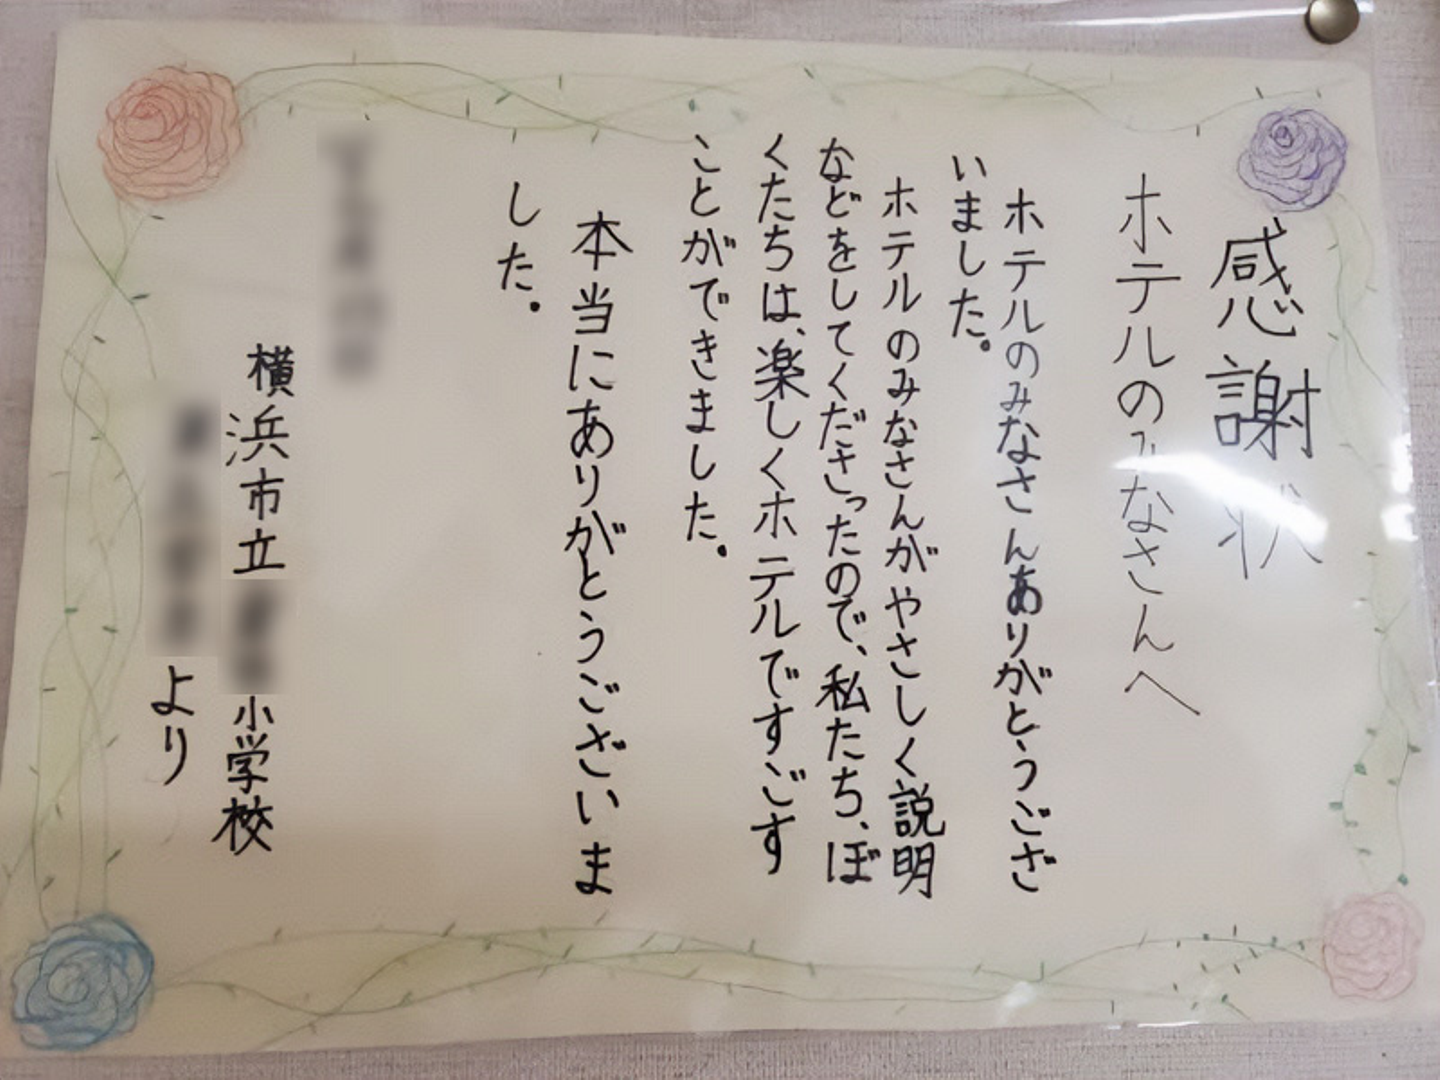 感謝状
ホテルのみなさんへ
ホテルのみなさんありがとうござ
いました。
ホテルのみなさんがやさしく説明
などをしてくださったので、私たち、ぼ
くたちは、楽しくホテルですごす
ことができました。
本当にありがとうございま
した。
横浜市立
小学校
より